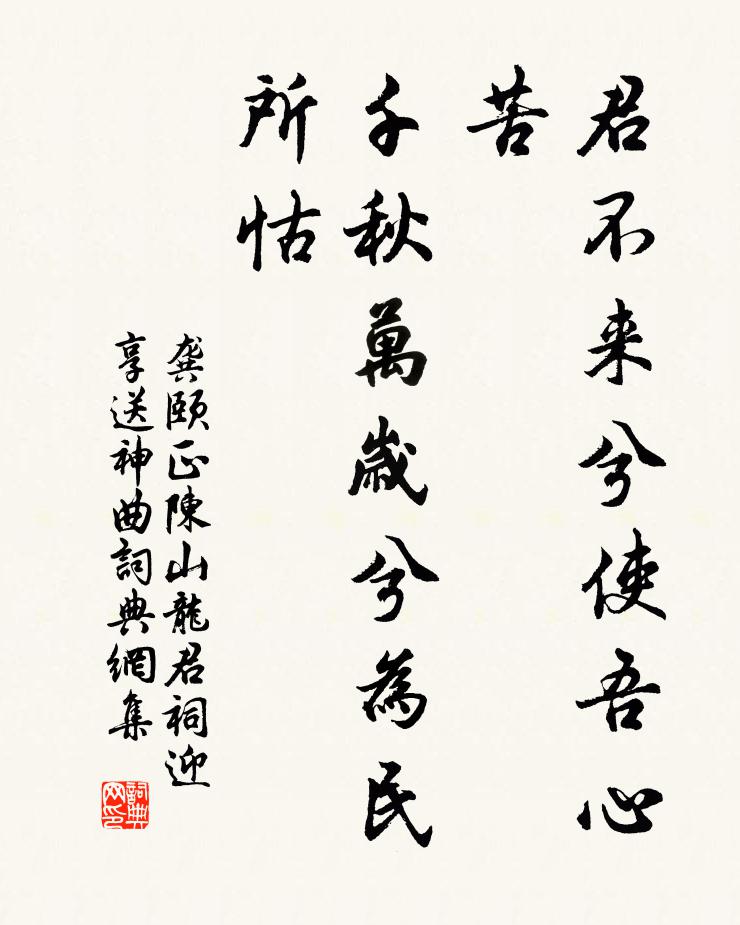 君不来兮使吾心
苦
千秋萬歲兮為民
所怙
龔頤正陳山龍君祠迎
享送神曲詞典網集
詞典
网印